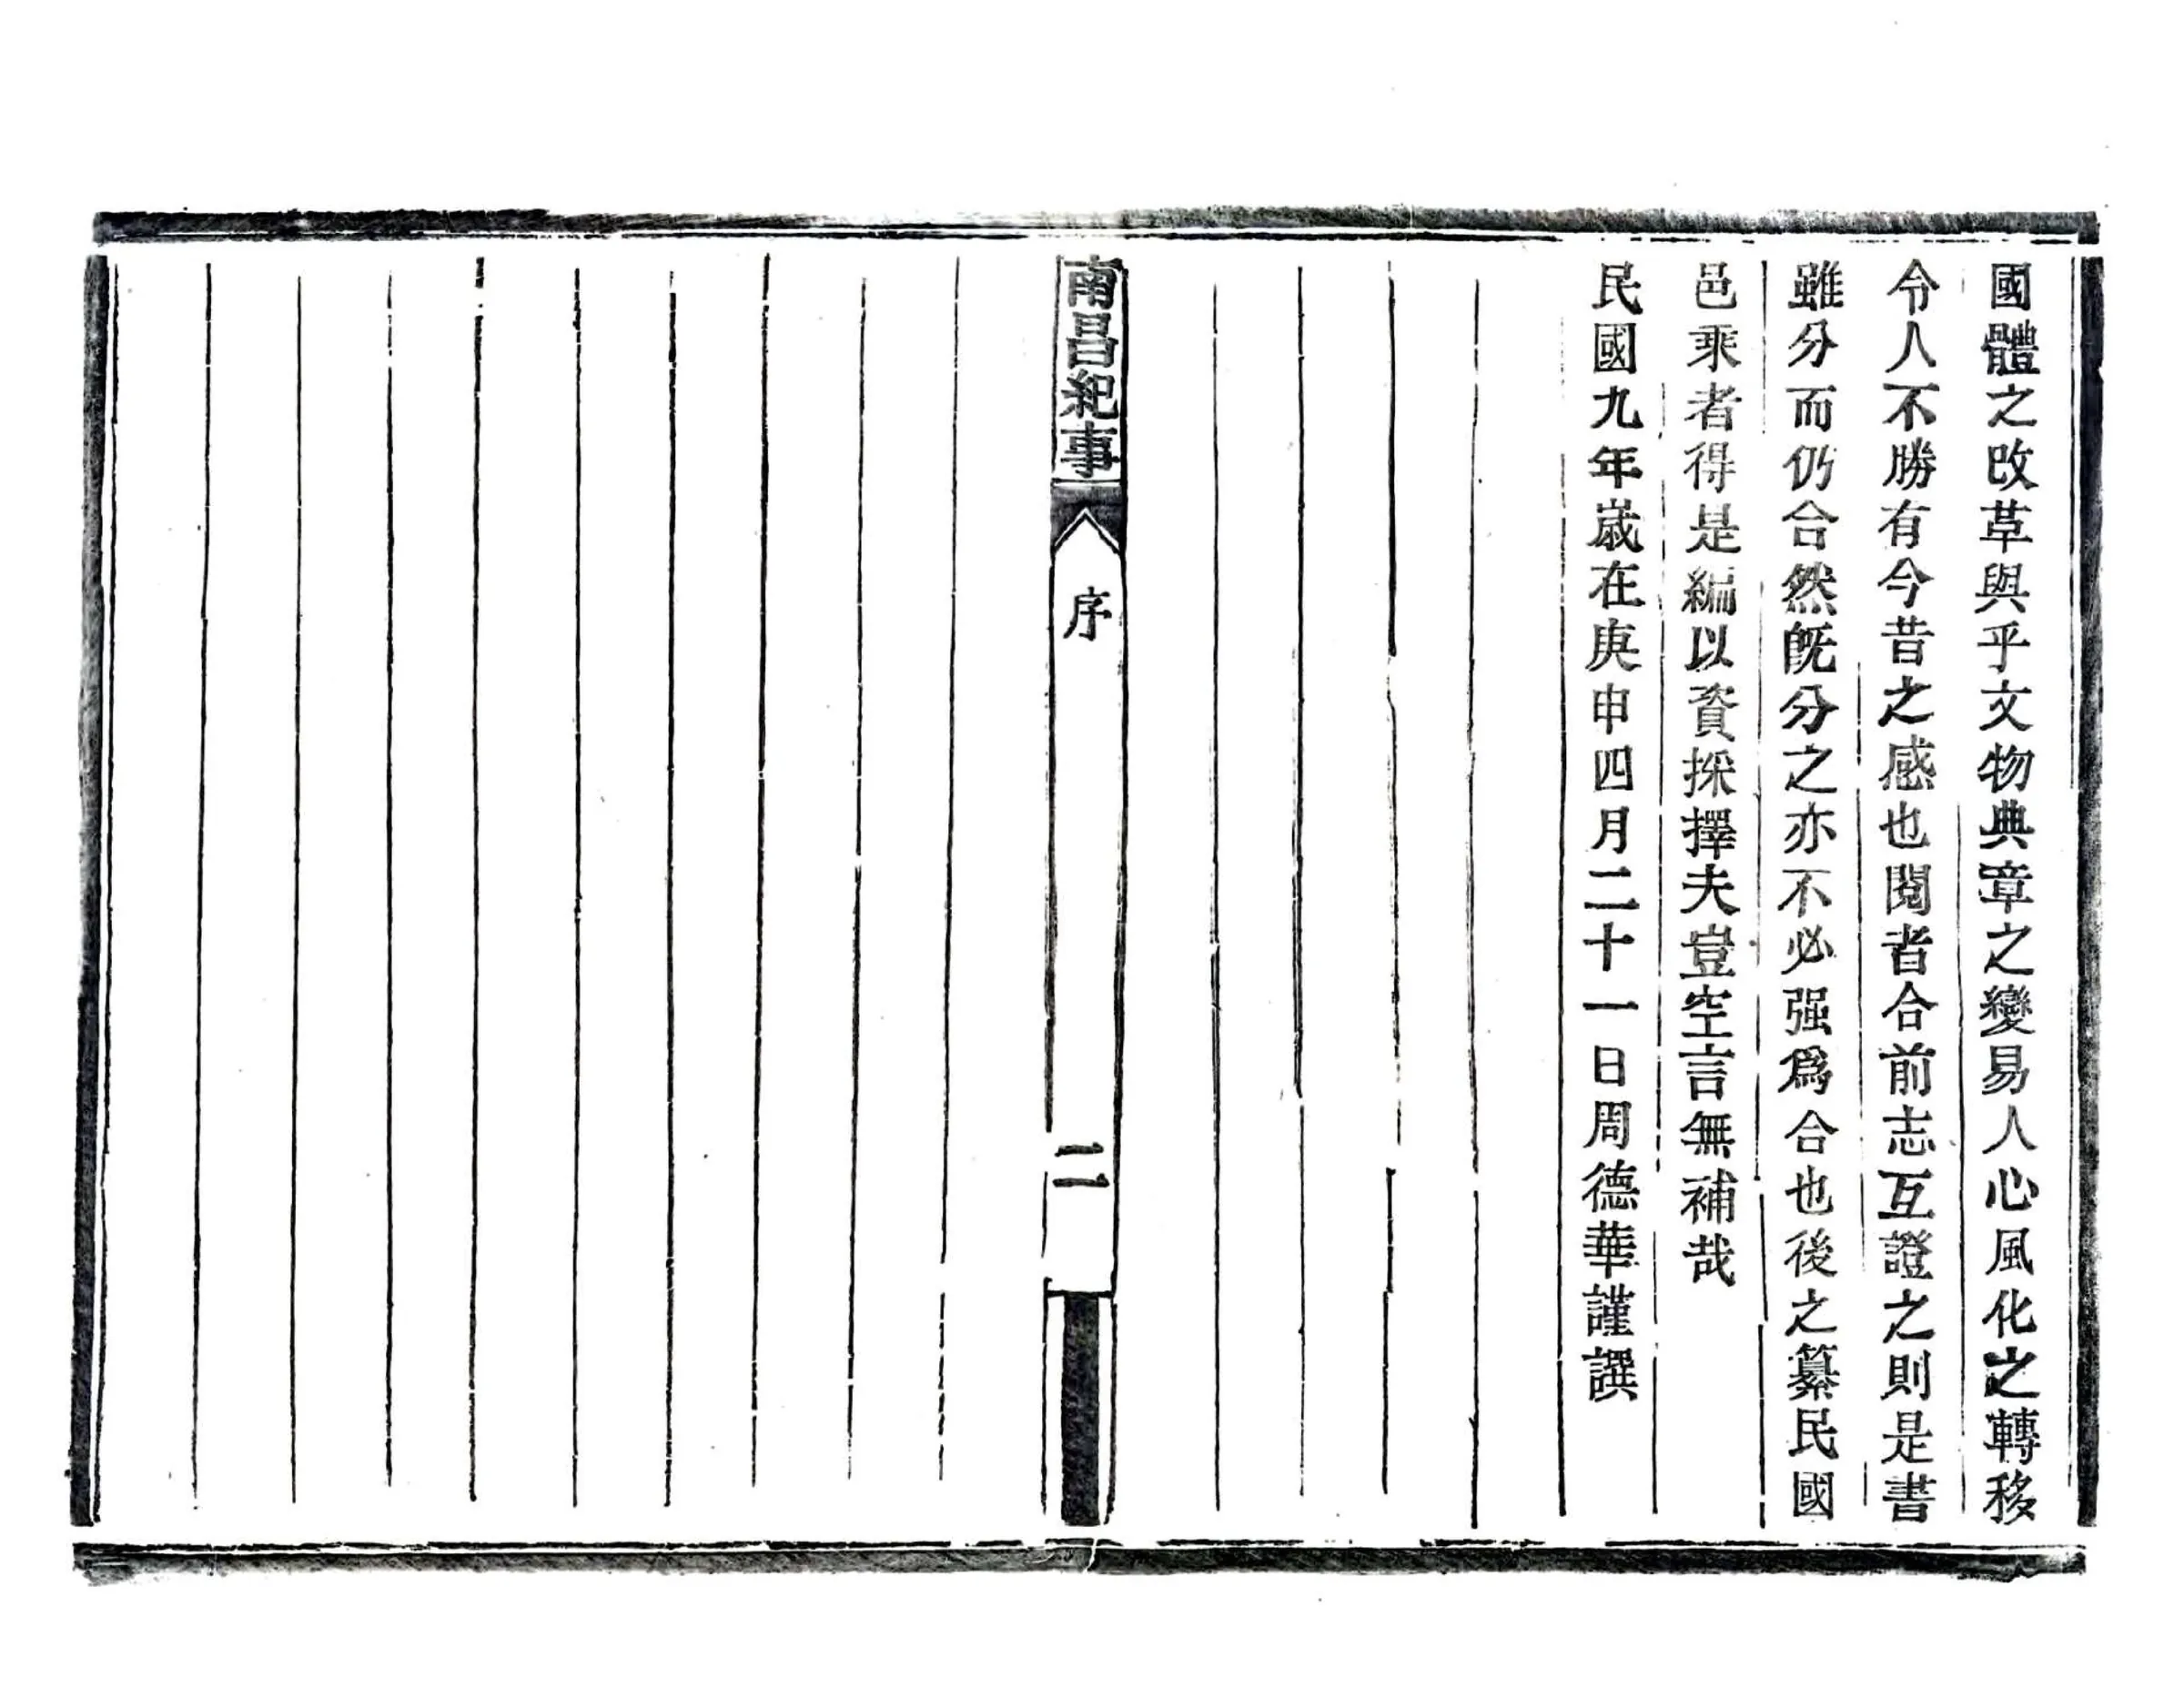 國體之改草與乎文物典章之變易人心風化之轉移
令人不勝有今昔之感也閱者合前志互證之則是書
雖分而仍合然旣分之亦不必强爲合也後之纂民國
邑乘者得是編以資採擇夫豈空言無補哉
民國九年嵗在庚申四月二十一日周德華謹譔
南昌紀事
序
二